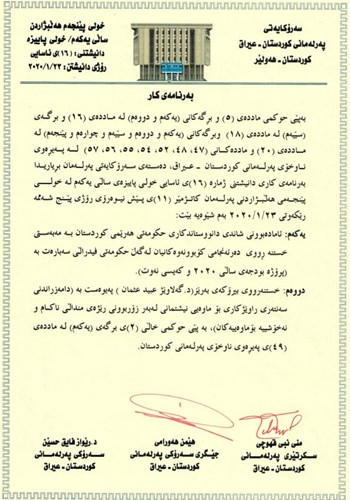 سەرۆکایەتی
پەرلەمانی کوردستان - عیراق
کوردستان - هەولێر
خولی پێنجەم هەڵبژاردن
ساڵی یەکەم/ خولی پاییزە
دانیشتنی: (١٦)ی ئاسایی
رۆژی دانیشتن: ٢٠٢٠/١/٢٣
بەرنامەی کار
بەپێی حوکمی ماددەی (٥) و بڕگەکانی (یەکەم و دووەم) لە ماددەی (١٦) و بڕگەی
(سێیەم) لە ماددەی (١٨) وبڕگەکانی (یەکەم و دووەم و سێیەم و چوارەم و پێنجەم) لە
ماددەی (٢٠) و ماددەکانی (٤٧، ٤٨، ٥٢، ٥٤، ٥٥، ٥٦، ٥٧) لە پەیڕەوی
ناوخۆی پەرلەمانی کوردستان - عیراق، دەستەی سەرۆکایەتی پەرلەمان بڕیاریدا
بەرنامەی کاری دانیشتنی ژمارە (١٦)ی ئاسایی خولی پاییزەی ساڵی یەکەم لە خولی
پێنجەمی هەڵبژاردنی پەرلەمان کاتژمێر (١١)ی پێش نیوەڕۆی رۆژی پێنج شەممە
رێکەوتی ٢٠٢٠/١/٢٣ بەم شێوەیە بێت:
یەکەم: ئامادەبوونی شاندی دانووستاندکاری حکومەتی هەرێمی کوردستان بە مەبەستی
خستنە ڕووی دەرئەنجامی کۆبوونەوەکانیان لەگەڵ حکومەتی فیدراڵی سەبارەت بە
(پرۆژە بودجەی ساڵی ٢٠٢٠ و کەیسی نەوت).
دووەم: خستنەڕووی بیرۆکەی بەڕێز(د.گەلاوێژ عبید عثمان ) پەیوەست بە (دامەزراندنی
سەنتەری راوێژکاری بۆ ماوەیی نیشتمانی لەبەر زۆربوونی رێژەی منداڵی ناکام و
نەخۆشییە بۆماوەییەکان)، بە پێی حوکمی خاڵی (٢)ی بڕگەی (یەکەم) لە ماددەی
(٤٩)ی پەیڕەوی ناوخۆی پەرلەمانی کوردستان.
د.رێواز فایق حسێن
سەرۆکی پەرلەمانی
کوردستان - عیراق
هێمن هەورامی
جێگری سەرۆکی پەرلەمانی
کوردستان - عیراق
منی نبی قهوچی
سکرتێری پەرلەمانی
کوردستان - عیراق